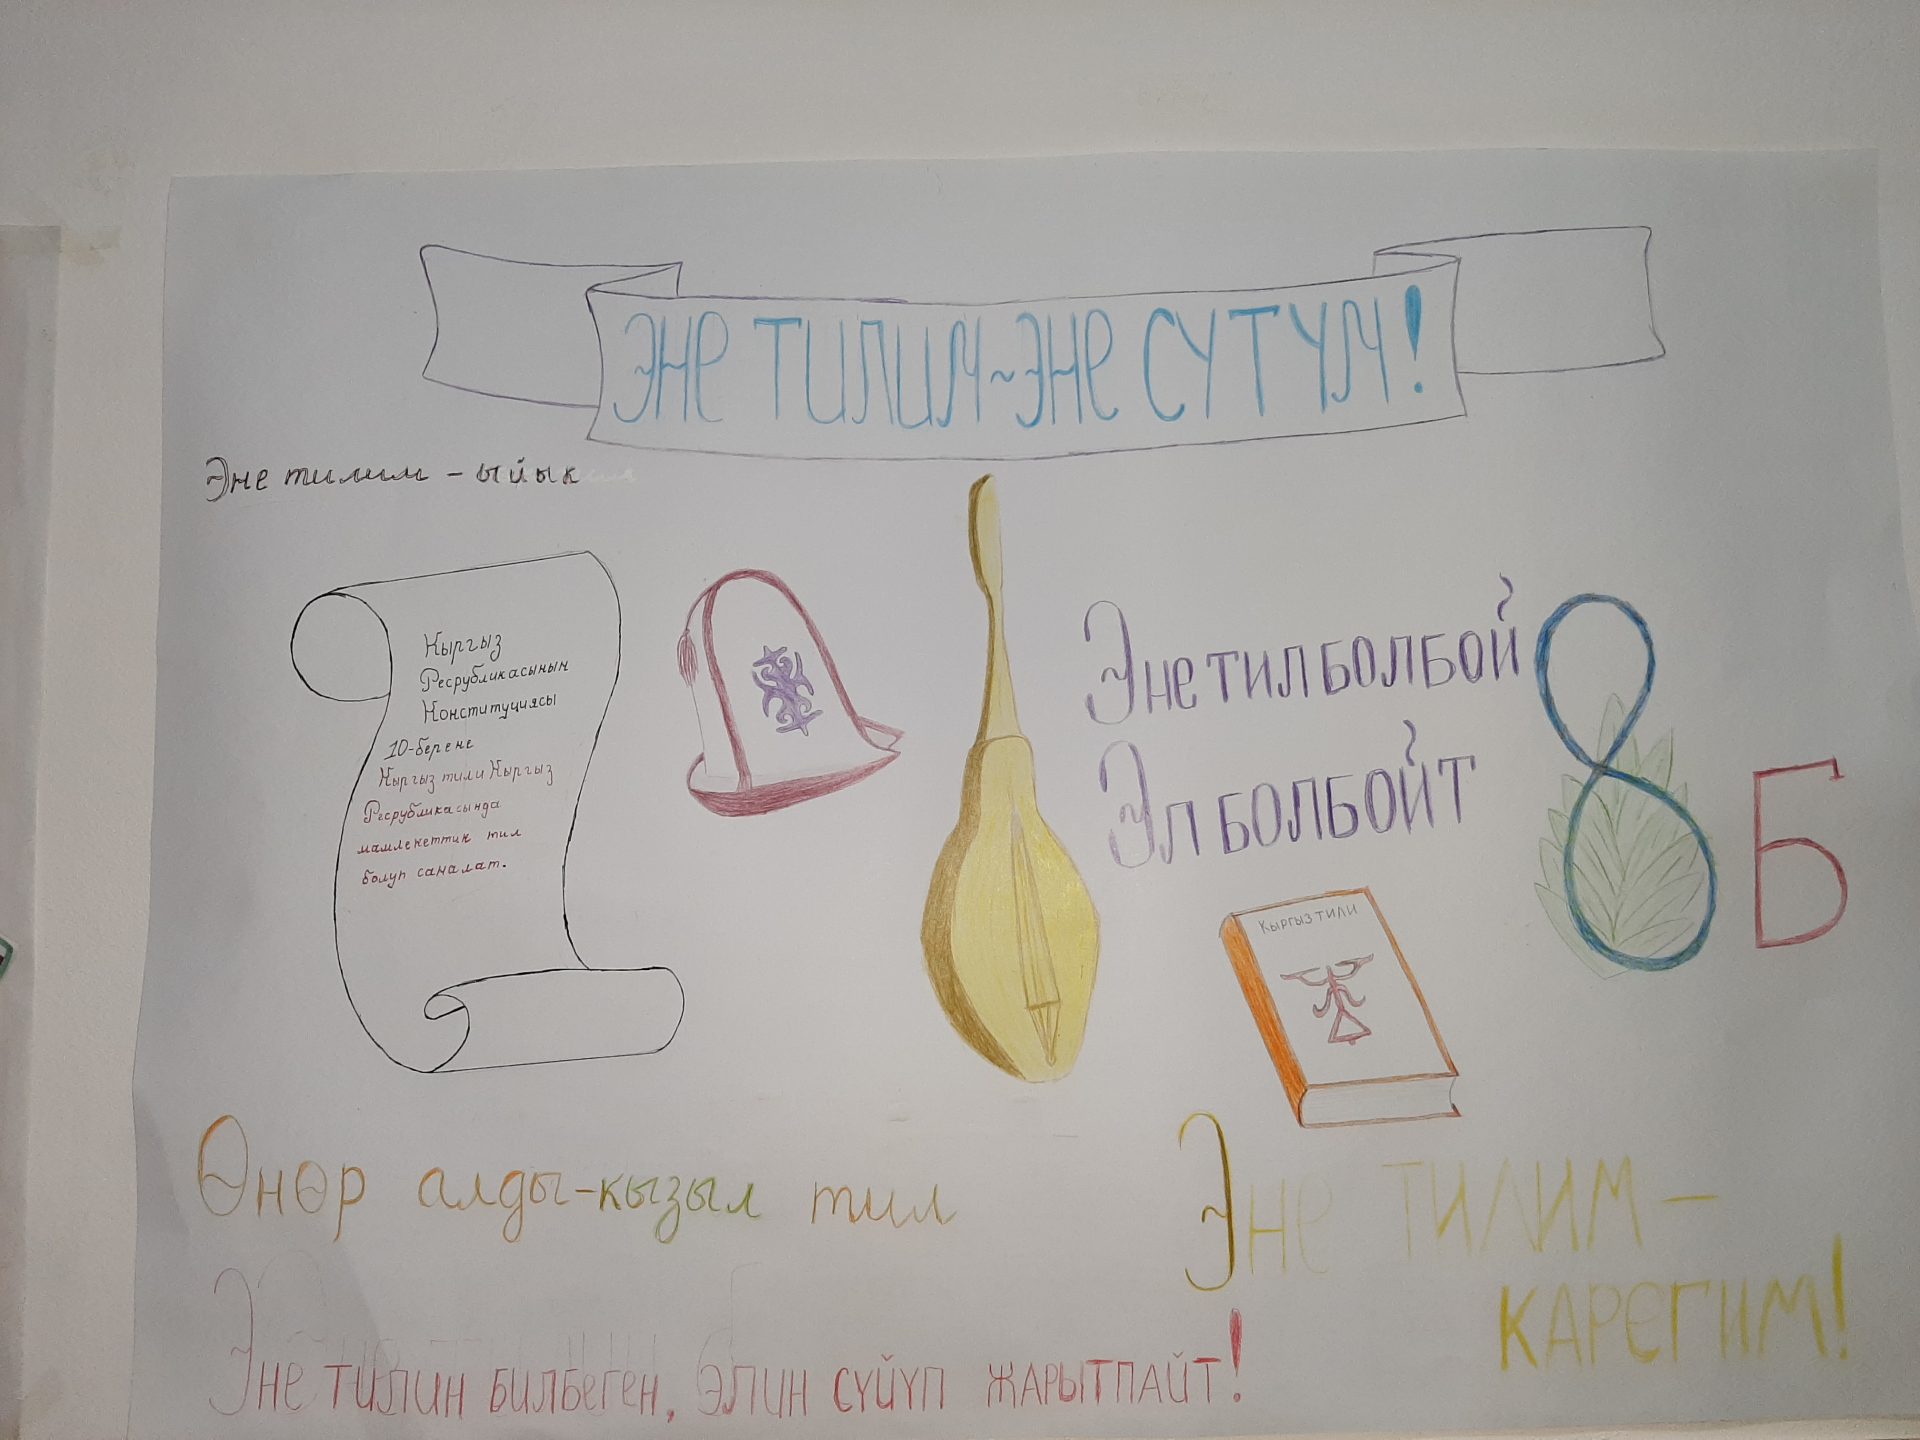 ЭНЕ ТИЛИМ~ЭНЕ СҮТҮМ!
Эне тилим – ыйык
Кыргыз
Республикасынын
Конституциясы
10-берене
Кыргыз тили Кыргыз
Республикасында
мамлекеттик тил
болуп саналат.
Эне тил болбой
Эл болбойт
8 Б
Кыргыз тили
Өнөр алды-кызыл тил
Эне тилим –
карегим!
Эне тилин билбеген, элин сүйүп жарытпайт!